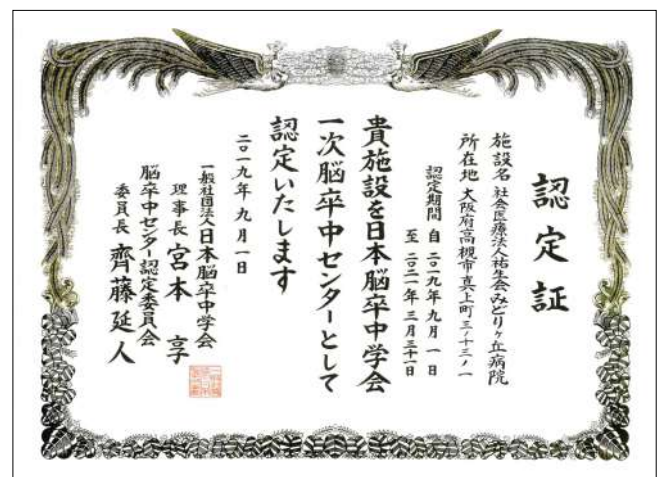 認定証
施設名 社会医療法人祐生会みどりヶ丘病院
所在地 大阪府高槻市真上町三ノ十三ノ一
認定期間 自 二〇一九年九月一日
至 二〇二一年三月三十一日
貴施設を日本脳卒中学会
一次脳卒中センターとして
認定いたします
二〇一九年九月一日
一般社団法人日本脳卒中学会
理事長 宮本 享
脳卒中センター認定委員会
委員長 齊藤延人